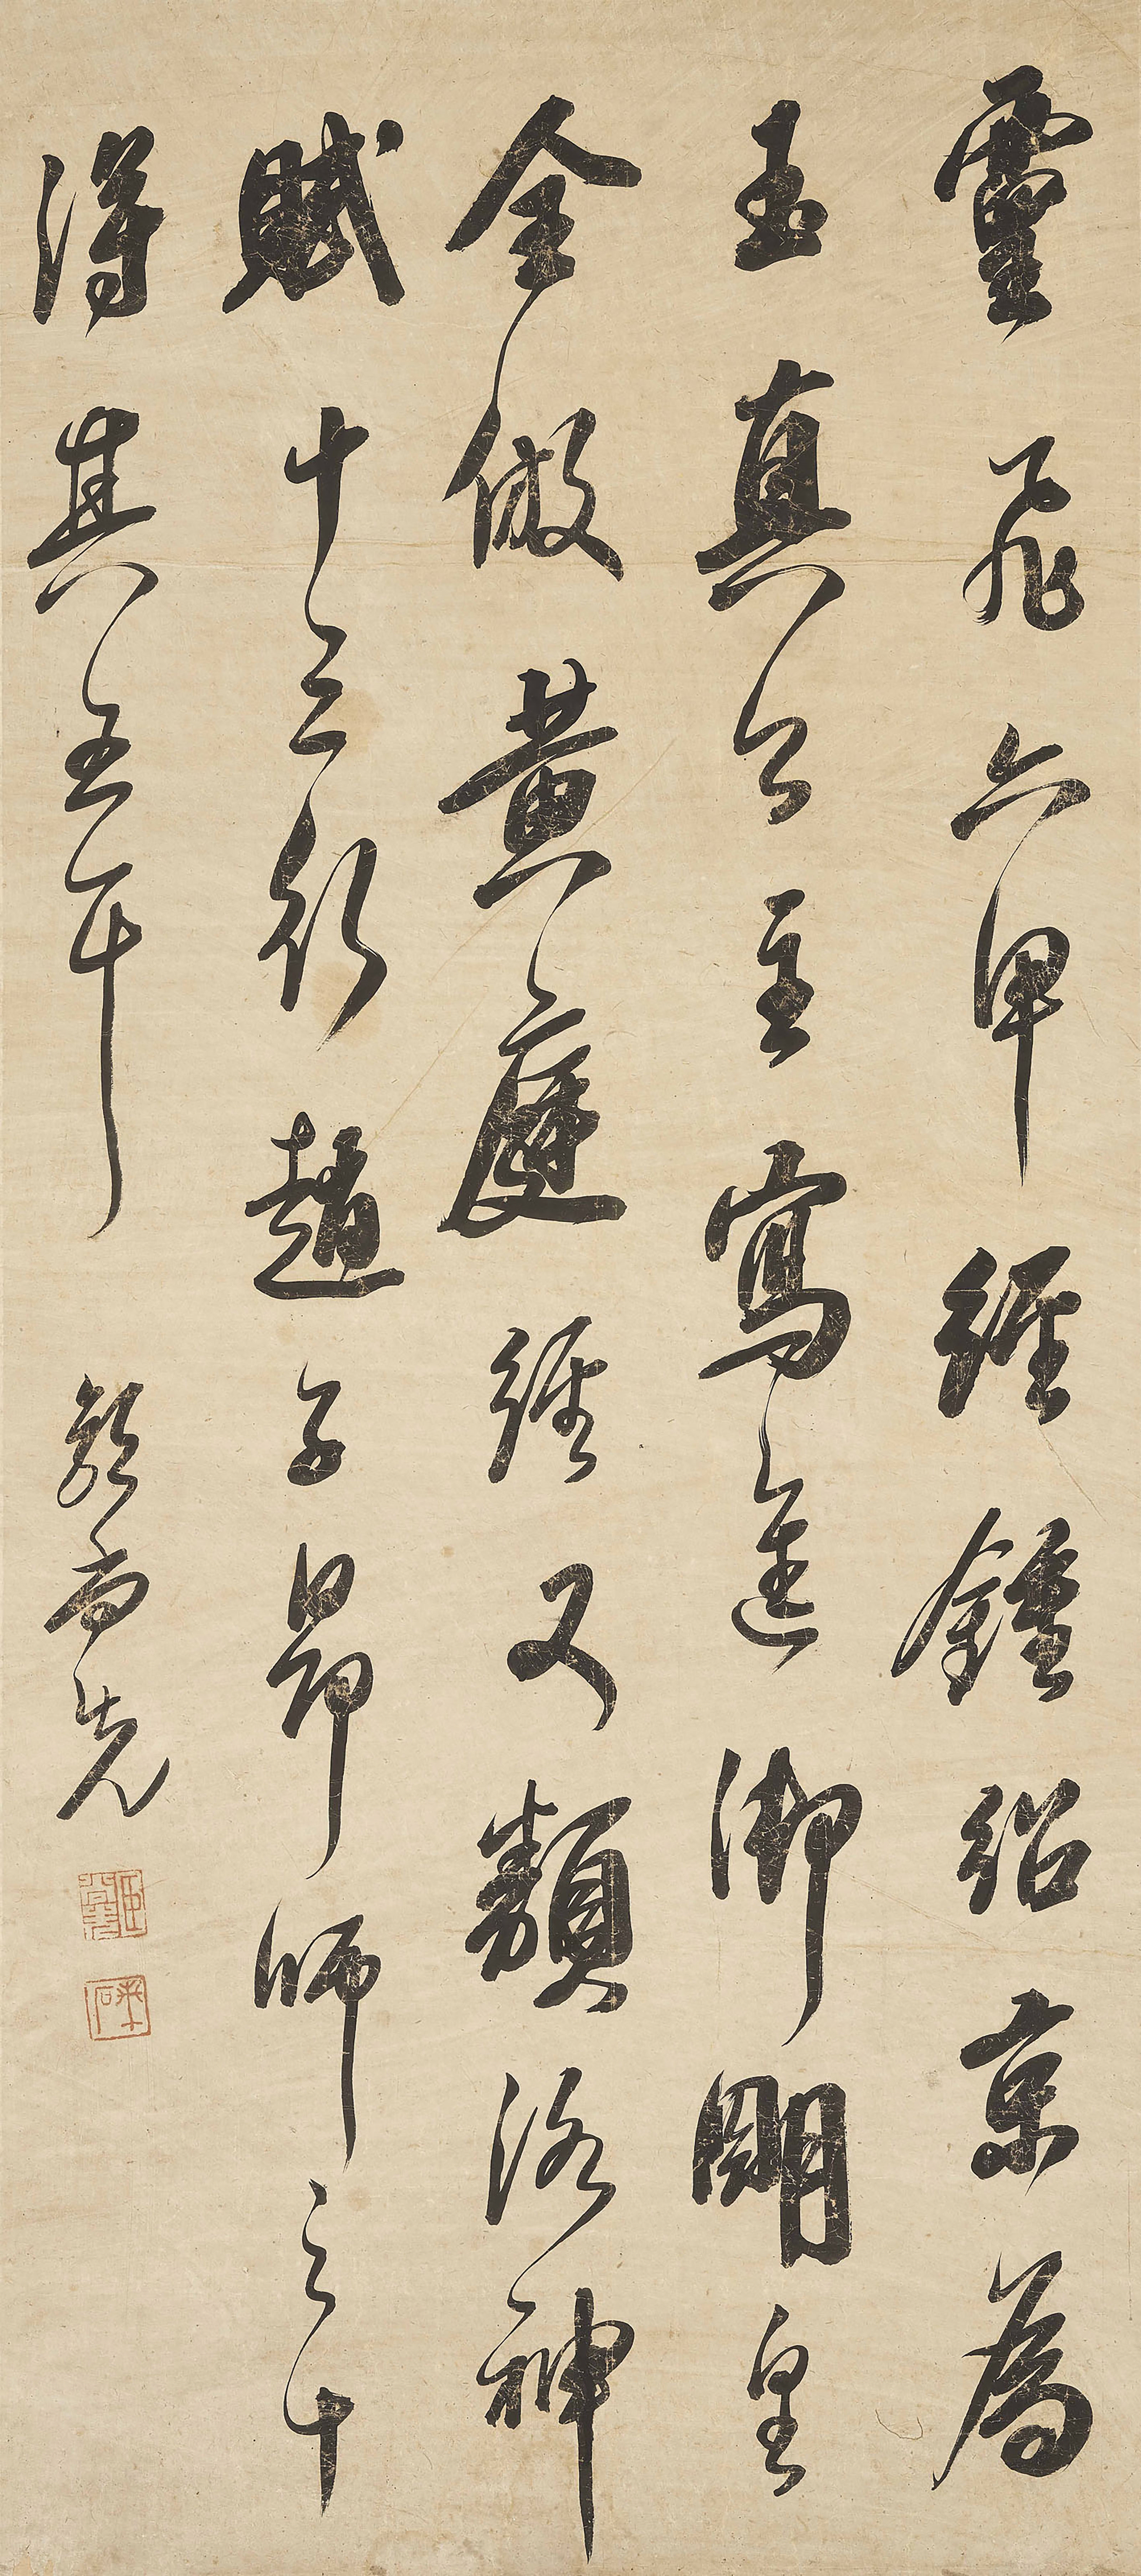 靈飛六甲經鍾紹京為
玉真公主寫進御明皇
全倣黃庭經又類洛神
賦十三行趙子昂師之十
得其五耳
鄭尚先